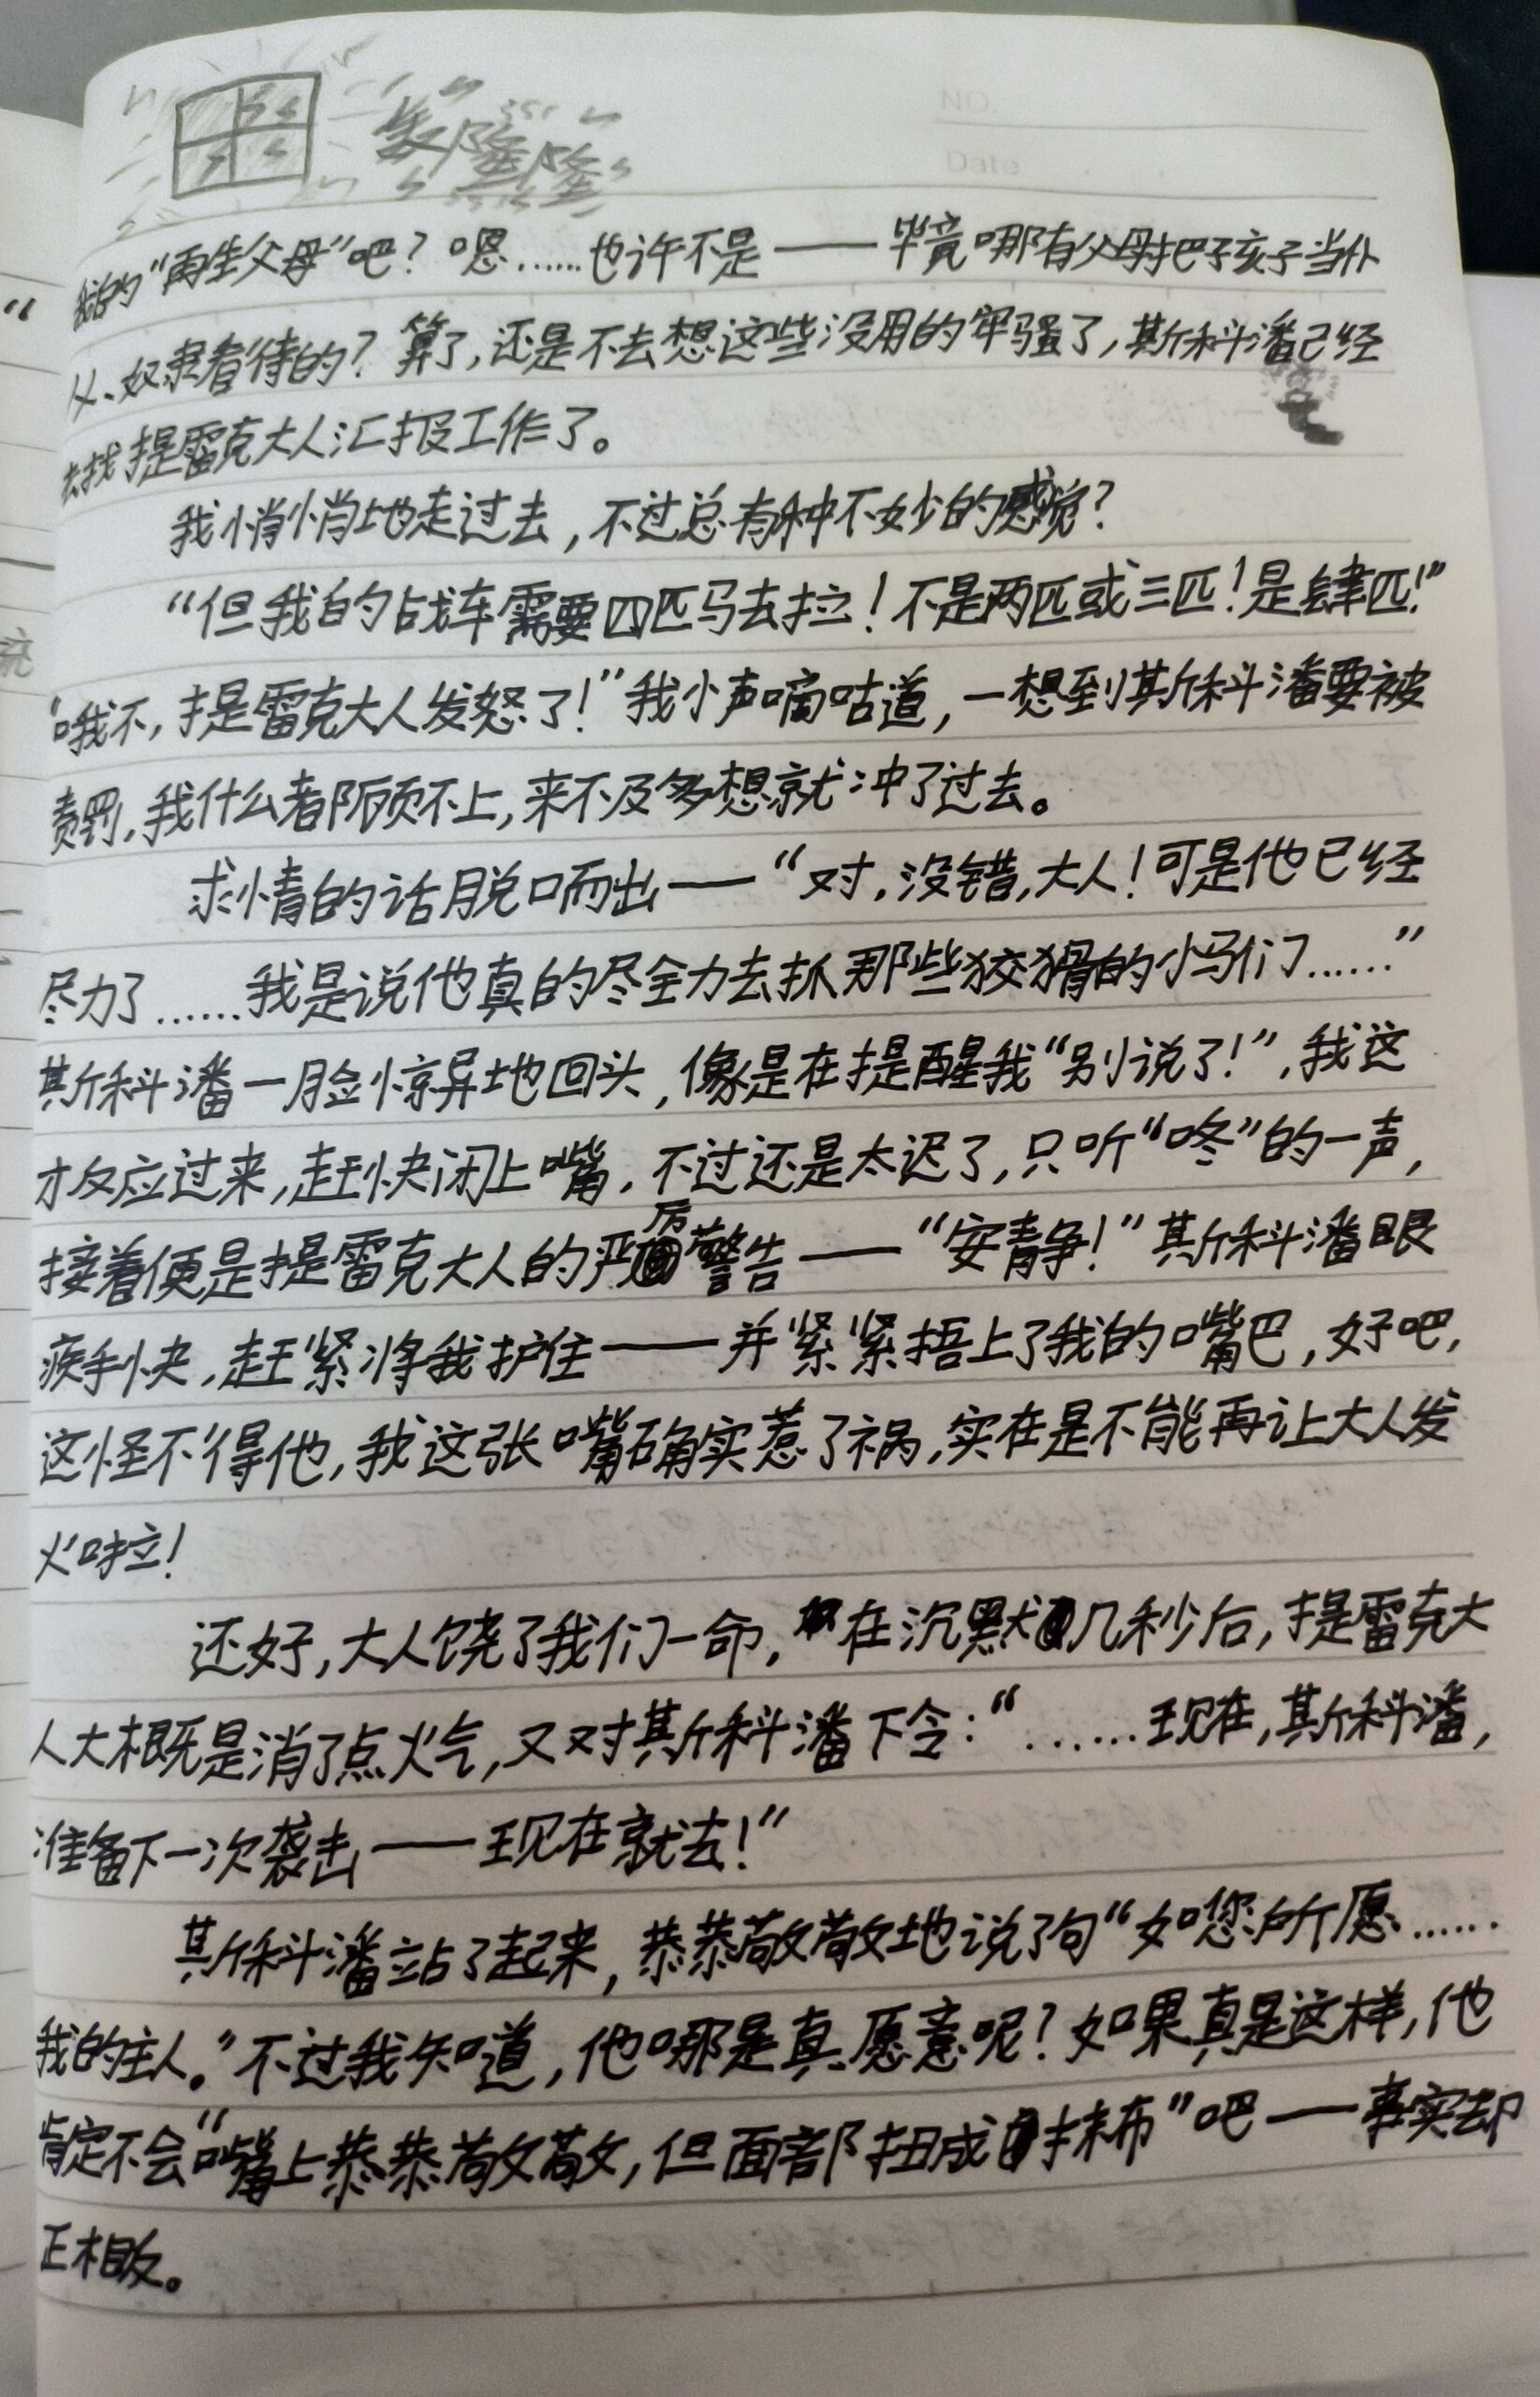 轰隆隆
NO.
Date
我的“再生父母”吧？嗯……也许不是——毕竟哪有父母把子孩子当仆
从、奴隶看待的？算了，还是不去想这些没用的牢骚了，斯科潘已经
去找提雷克大人汇报工作了。
我悄悄地走过去，不过总有种不妙的感觉？
“但我的战车需要四匹马去拉！不是两匹或三匹！是肆匹！”
“哦不，提雷克大人发怒了！”我小声嘀咕道，一想到斯科潘要被
责罚，我什么都顾不上，来不及多想就冲了过去。
求情的话脱口而出——“对，没错，大人！可是他已经
尽力了……我是说他真的尽全力去抓那些狡猾的小马们……”
斯科潘一脸惊异地回头，像是在提醒我“别说了！”，我这
才反应过来，赶快闭上嘴，不过还是太迟了，只听“咚”的一声，
接着便是提雷克大人的严厉警告——“安静！”斯科潘眼
疾手快，赶紧将我护住——并紧紧捂上了我的嘴巴，好吧，
这怪不得他，我这张嘴确实惹了祸，实在是不能再让大人发
火啦！
还好，大人饶了我们一命，在沉默几秒后，提雷克大
人大概是消了点火气，又对斯科潘下令：“……现在，斯科潘，
准备下一次袭击——现在就去！”
斯科潘站了起来，恭恭敬敬地说了句“如您所愿……
我的主人。”不过我知道，他哪是真愿意呢？如果真是这样，他
肯定不会“嘴上恭恭敬敬，但面部扭成抹布”吧——事实却
正相反。